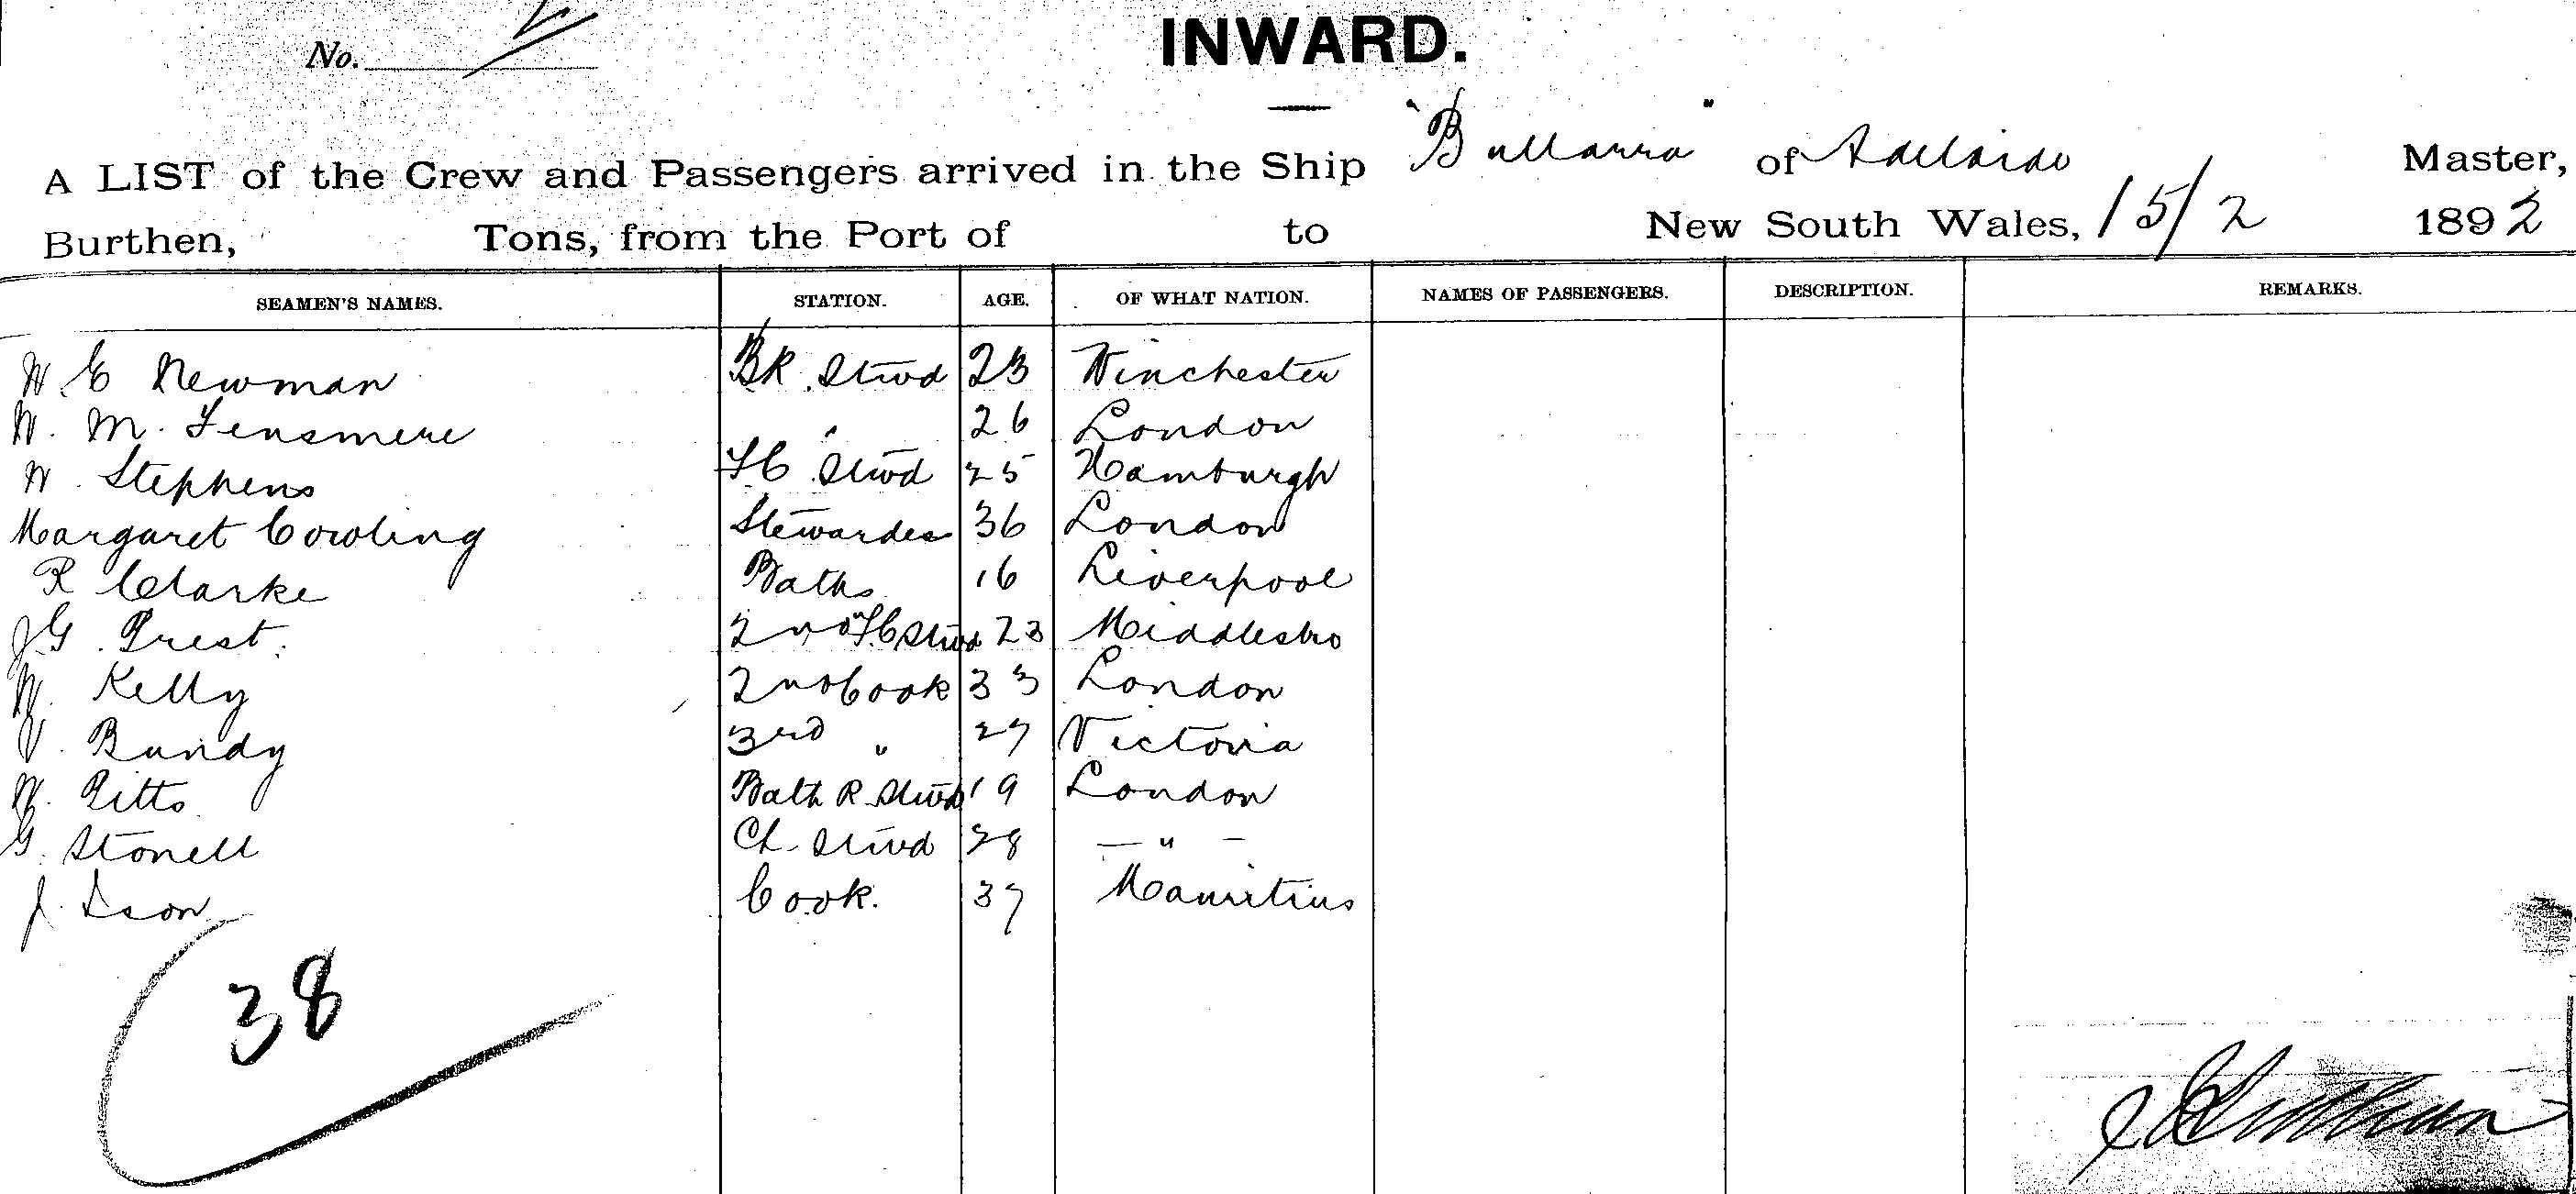 No.
INWARD.
A LIST of the Crew and Passengers arrived in the Ship "Bullarra" of Adelaide Master,
Burthen, Tons, from the Port of to New South Wales, 15/2 1892
SEAMEN'S NAMES. STATION. AGE. OF WHAT NATION. NAMES OF PASSENGERS. DESCRIPTION. REMARKS.
W. E Newman BR Stwd 23 Winchester
W. M. Tensmere " 26 London
W. Stephens FC Stwd 25 Hamburgh
Margaret Cowling Stewardess 36 London
R Clarke Baths 16 Liverpool
J G. Prest. 2nd FC Stwd 23 Middlesbro
W. Kelly 2nd Cook 33 London
V. Bundy 3rd " 27 Victoria
W. Pitts Bath R Stwd 19 London
G. Stonell Ch. Stwd 28 — " —
J. Cook. 37 Mauritius
38